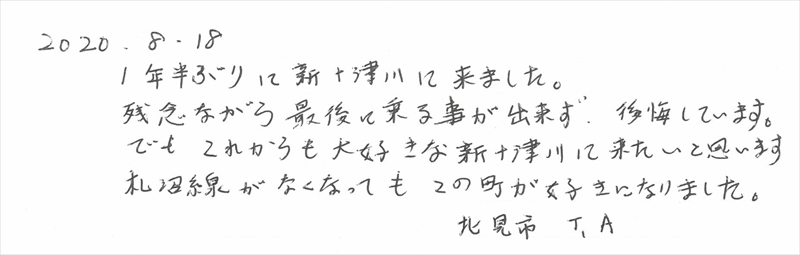 2020.8.18
1年半ぶりに新十津川に来ました。
残念ながら最後に乗る事が出来ず、後悔しています。
でもこれからも大好きな新十津川に来たいと思います
札沼線がなくなってもこの町が好きになりました。
北見市 T,A